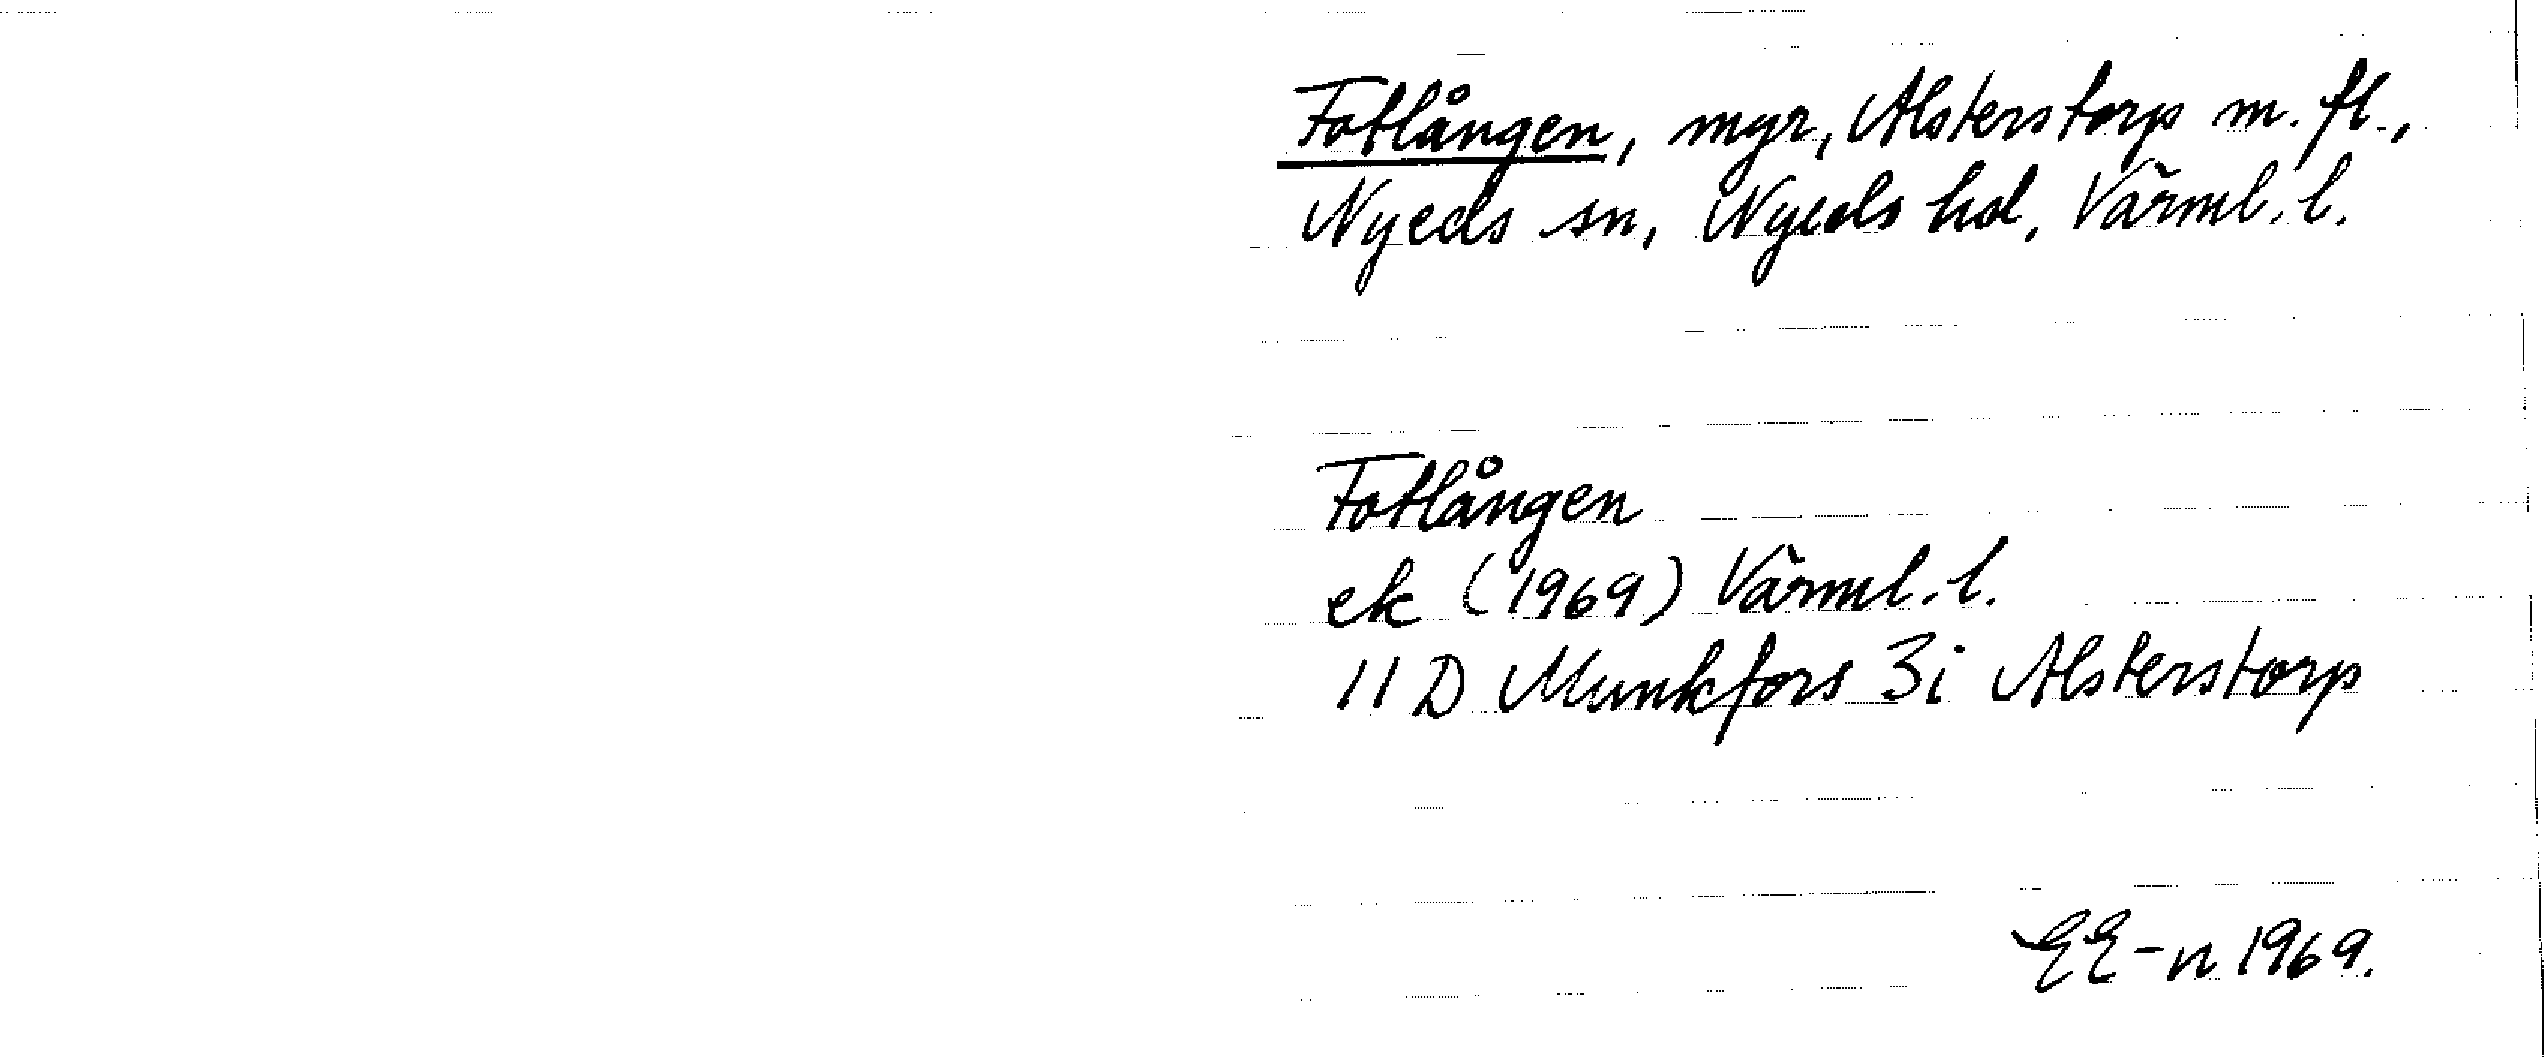 Fotlången, myr, Alsterstorp m. fl.,
Nyeds sn, Nyeds hd, Värml. l.
Fotlången
ek (1969) Värml. l.
11 D Munkfors 3i Alsterstorp
EE-n 1969.